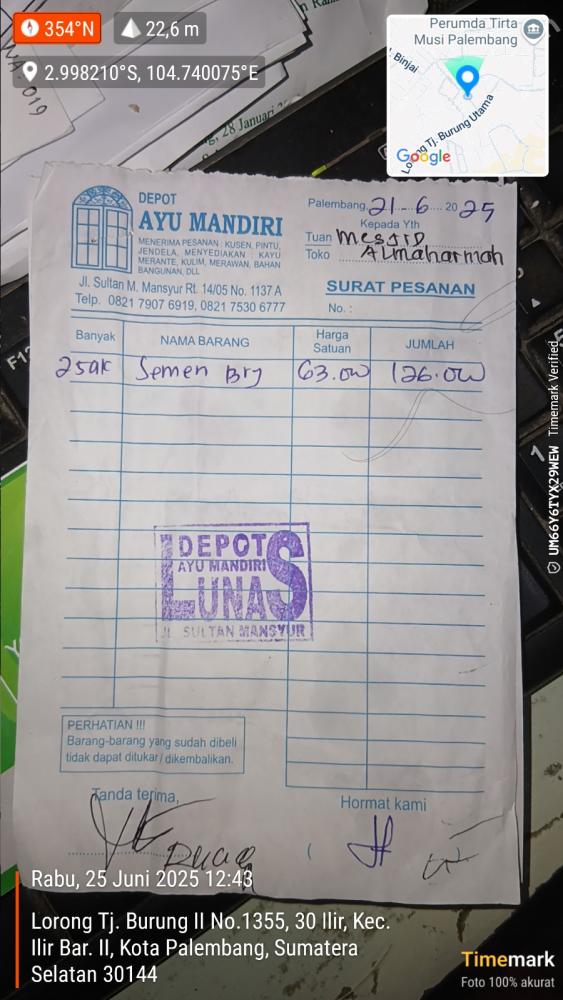 354°N
22,6 m
2.998210°S, 104.740075°E
Perumda Tirta
Musi Palembang
Binjai
Tj. Burung Utama
Google
019
28 Januari
DEPOT
AYU MANDIRI
MENERIMA PESANAN : KUSEN, PINTU,
JENDELA, MENYEDIAKAN : KAYU
MERANTE, KULIM, MERAWAN, BAHAN
BANGUNAN, DLL
Jl. Sultan M. Mansyur Rt. 14/05 No. 1137 A
Telp. 0821 7907 6919, 0821 7530 6777
Palembang, 21-6 2025
Kepada Yth
Tuan Mesjid
Toko Almaharmah
SURAT PESANAN
No. :
Banyak NAMA BARANG Harga Satuan JUMLAH
2 sak Semen Brj 63.000 126.000
DEPOT
AYU MANDIRI
LUNAS
Jl SULTAN MANSYUR
PERHATIAN !!!
Barang-barang yang sudah dibeli
tidak dapat ditukar / dikembalikan.
Tanda terima,
Hormat kami
Rabu, 25 Juni 2025 12:43
Lorong Tj. Burung II No.1355, 30 Ilir, Kec.
Ilir Bar. II, Kota Palembang, Sumatera
Selatan 30144
Timemark
Foto 100% akurat
UM66Y6TYX29WEW Timemark Verified